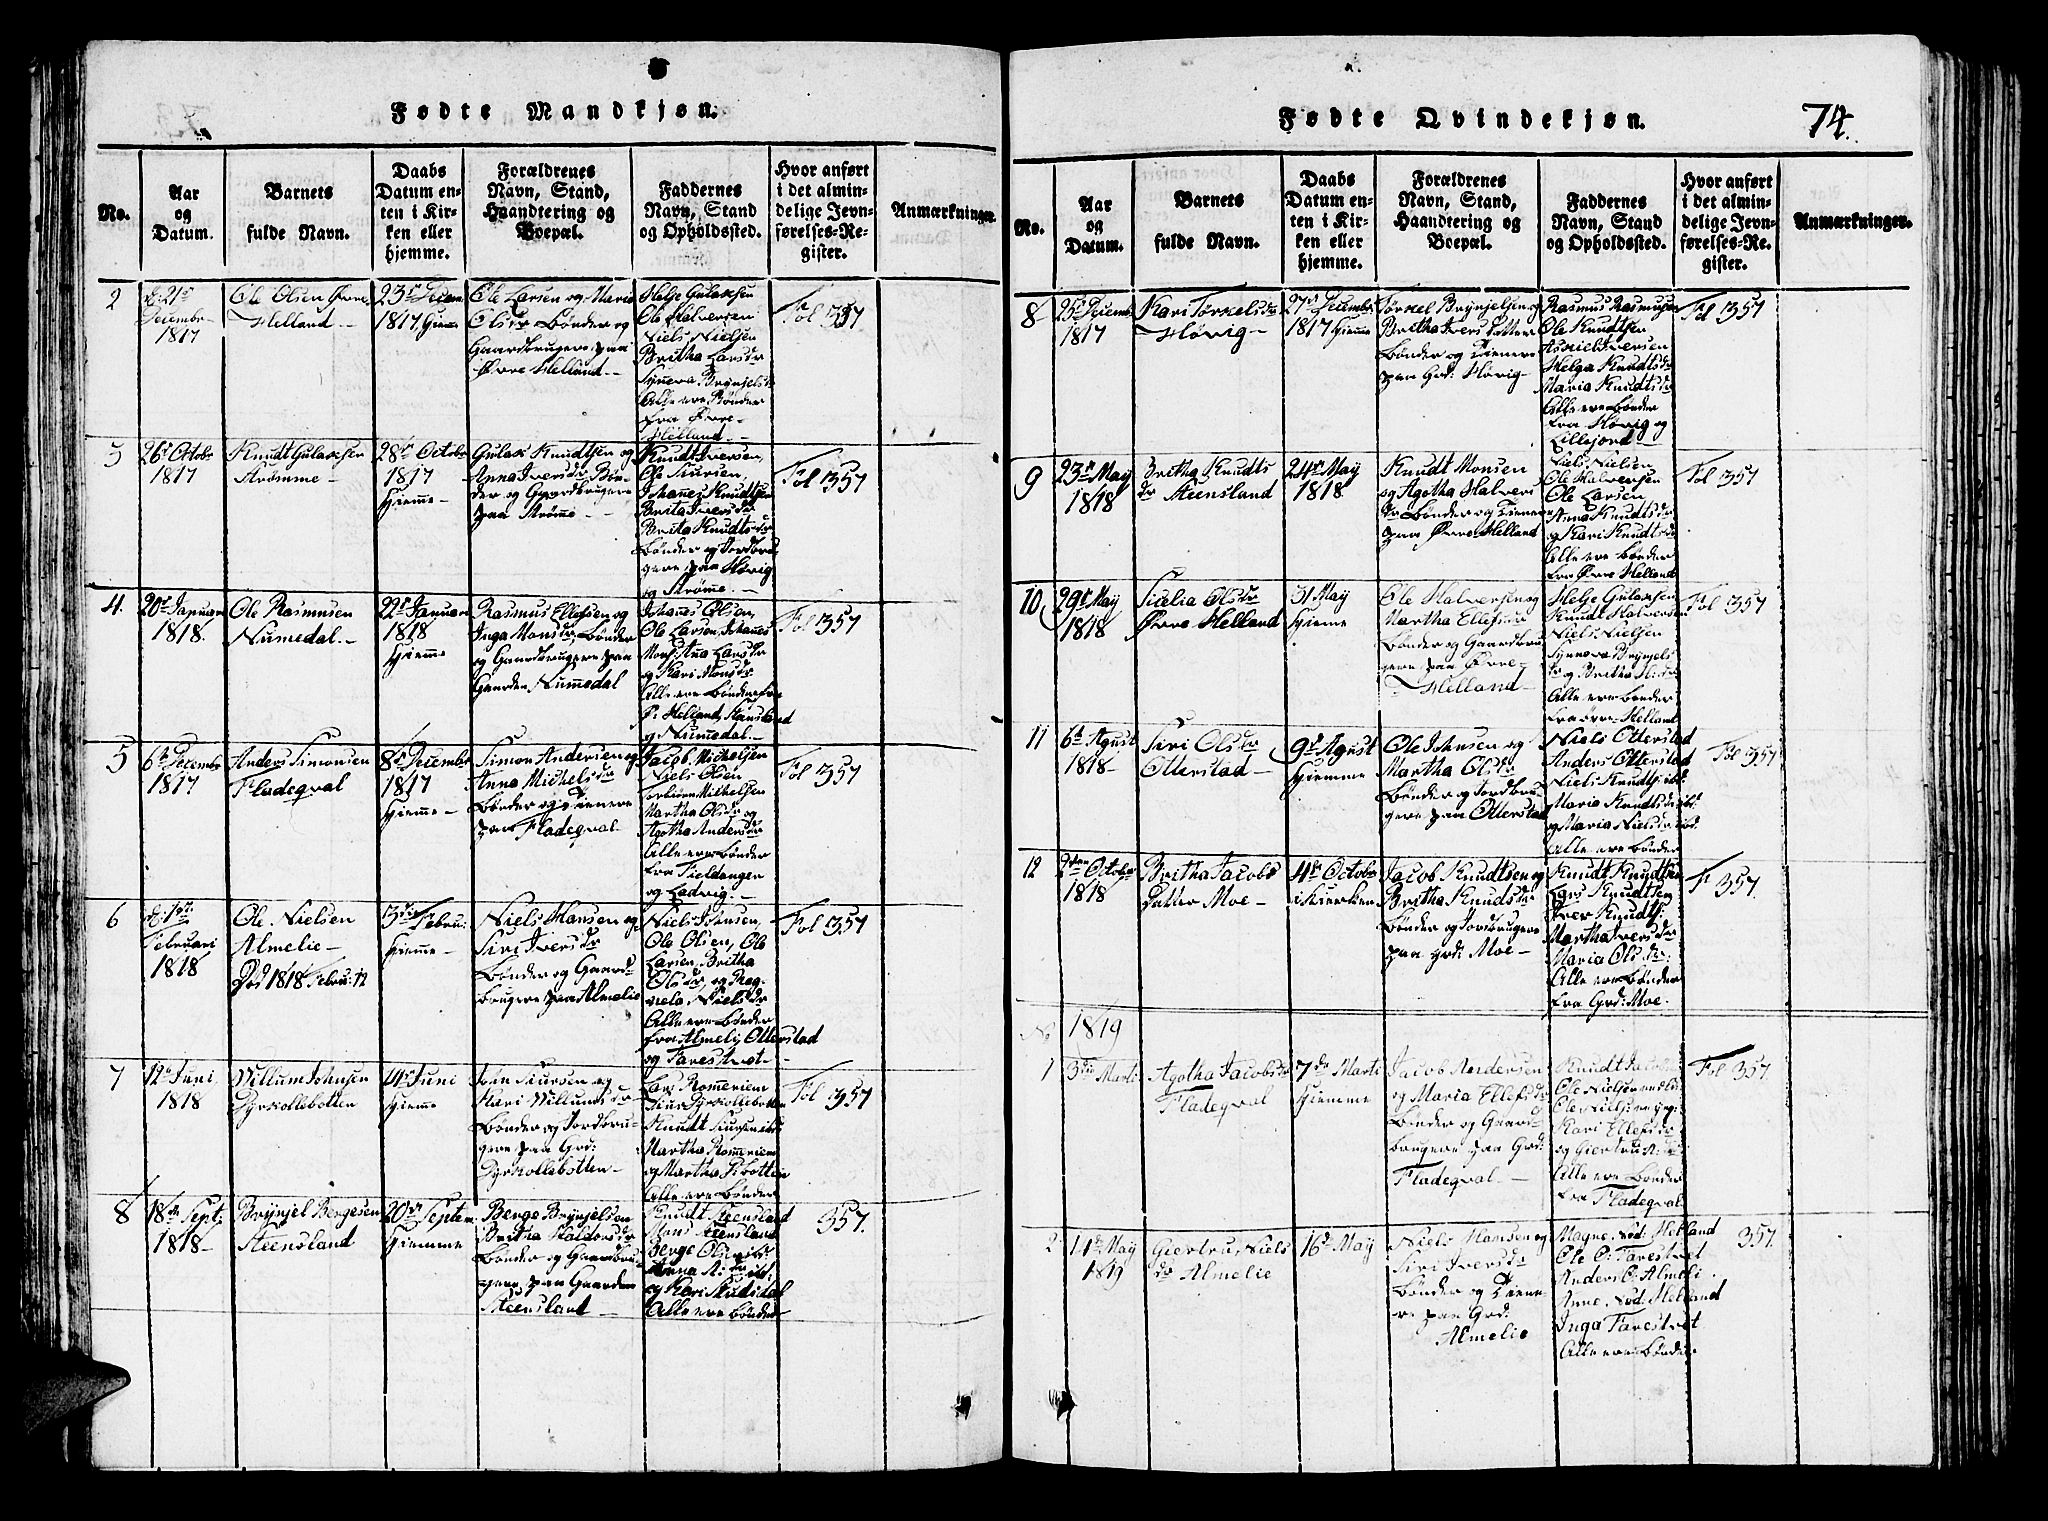 Fødte Mandkjøn.
No.
Aar
og
Datum.
Barnets
fulde Navn.
Daabs
Datum en-
ten i Kir-
ken eller
hjemme.
Forældrenes
Navn, Stand,
Haandtering og
Boepæl.
Faddernes
Navn, Stand
og Opholdssted.
Hvor anført
i det almin-
delige Jevn-
førelses-Re-
gister.
Anmærkninger.
2
d: 21de
Decembr
1817
Ole Olsen Øvre
Helland
23de Decem
1817 Hiemme
Ole Larsen og Maria
Olsdr Bønder og
Gaardbrugere paa
Øvre Helland
Helje Gulaksen
Ole Halversen
Niels Nielsen
Britha Larsdr
Synneva Brynjelsdr
Alle ere Bønder
fra Øvre
Helland
Fol 357
3
26de Octobr
1817
Knudt Gulaksen
Strømme
28de Octobr
1817
Hiemme
Gulak Knudtsen og
Anna Iversdr Bøn-
der og Gaardbrugere
paa Strømme
Knudt Iversen,
Ole Siursen
Johanes Knudtsen
Brita Iversdr
Brita Knudtsdr
Bønder og Jordbru
gere paa Høvig
og Strømme
Fol 357
4.
20de Januar
1818.
Ole Rasmusen
Numedal
22de Januar
1818
Hiemme
Rasmus Ellefsen og
Inga Monsdr Bønder
og Gaardbrugere paa
Gaarden Nummedal
Johanes Olsen,
Ole Larsen, Johannes
Mons: Ana Larsdr
og Kari Monsdr
Alle ere Bønder fra
Ø: Helland, Stensland
og Nummedal
Fol 357
5
6te Decembr
1817
Anders Simonsen
Fladeqval
8de Decembr
1817
Hiemme
Simon Andersen og
Anna Michelsdr
Bønder og Tienere
paa Fladeqval
Jacob Michelsen
Niels Olsen
Torbiørn Michelsen
Martha Olsdr og
Agotha Andersdr
Alle ere Bønder
fra Fieldanger
og Ladvig
Fol 357
6
d: 1ste
Februari
1818
Ole Nielsen
Almelie
Død 1818 Febru: 12
3die Febru:
Hiemme
Niels Hansen og
Siri Iversdr
Bønder og Gaard
brugere paa Almelie
Niels Johnsen,
Ole Olsen, Ole
Larsen, Britha
Olsdr, og Rag-
nela Nielsdr
Alle ere Bønder
fra Almeli Otterstad
og Farestvet
Fol 357
7
12te Juni
1818
Willum Johnsen
Dyrkollebotten
14de Juni
Hiemme
John Siursen og
Kari Willumsdr
Bønder og Jordbru-
gere paa Grd:
Dyrkollebotten
Lars Romeriem
Siur Dyrkollebotten
Knudt Siursen ibd
Martha Romeriem
og Martha D:botten
Alle ere Bønder
Fol 357
8
18de Sept:
1818
Brynjel Bergesen
Steensland
20de Septem
Hiemme
Berge Brynjelsen
Britha Haldorsdr
Bønder og Gaardbru
gere paa Gaarden
Steensland
Knudt Steensland
Mons Steensland
Berge Ols: ibd:
Anna A:dr ibd:
og Kari Stulsdal
Alle ere Bønder
357.
Fødte Qvindekjøn.
74.
No.
Aar
og
Datum.
Barnets
fulde Navn.
Daabs
Datum en-
ten i Kir-
ken eller
hjemme.
Forældrenes
Navn, Stand,
Haandtering og
Boepæl.
Faddernes
Navn, Stand
og Opholdssted.
Hvor anført
i det almin-
delige Jevn-
førelses-Re-
gister.
Anmærkninger.
8
25de Decemb
1817
Kari Torkelsdr
Høvig
27de Decembr
1817 Hiemme
Torkel Brynjelsen og
Britha Ivers Datter
Bønder og Tienere
paa Grd: Høvig
Rasmus Rasmusen
Ole Knudtsen
Askield Iversen
Helga Knudtsdr
Maria Knudtsdr
Alle ere Bønder
fra Høvig og
Lillejord
Fol 357
9
23de May
1818
Britha Knudts
dr Steensland
24de May
1818
Knudt Monsen
og Agotha Halvers
dr Bønder og Tiener
paa Øvre Helland
Niels Nielsen
Ole Halversen
Ole Larsen
Anna Knudtsdr
og Kari Knudtsdr
Alle ere Bønder
fra Øvre Helland
Fol 357
10
29de May
1818
Sicelia Olsdr
Øvre Helland
31 May
Hieme
Ole Halversen og
Martha Ellefsdr
Bønder og Gaardbru
gere paa Øvre
Helland
Helje Gulaksen
Knudt Halversen
Niels Nielsen
Synneva Brynjels
dr og Britha H:dr
Alle ere Bønder
fra øvre Helland
Fol 357
11
6te Agust
1818
Siri Olsdr
Otterstad
9de Agust
Hiemme
Ole Johnsen og
Martha Olsdr
Bønder og Jordbru-
gere paa Otterstad
Niels Otterstad
Anders Otterstad
Niels Knudts: ibd:
Maria Knudtsdr ibd:
og Maria Nielsdr ibd.
Alle ere Bønder
Fol 357
12
2den Octobr
1818
Britha Jacobs
Datter Moe
4de Octobr
i Kierken
Jacob Knudtsen og
Britha Knudsdr
Bønder og Jordbrugere
paa grd: Moe
Knudt Knudtsen
Lars Knudts:
Iver Knudts:
Martha Iversdr
Maria Olsdr:
Alle ere Bønder
fra Grd: Moe
F 357.
N
1819
1
3die Marti
Agotha Jacobsdr
Fladeqval
7de Marti
Hiemme
Jacob Andersen
og Maria Ellefsdr
Bønder og Gaard
brugere paa Grd:
Fladeqval
Knudt Jacobsen
Ole Nielsen
Ole Nielsen
Kari Ellefsdr
og Giertru
Alle ere Bønder
fra Fladeqval
Fol 357.
2
14de May
1819
Giertru Niels
dr Almelie
16de May
Niels Hansen og
Siri Iversdr
Bønder og Tiene
re paa Grd:
Almelie
Magne Ned: Helland
Ole O: Farestvet
Anders O: Almeli
Anne Ned: Helland
Inga Farestvet
Alle ere Bønder
357.